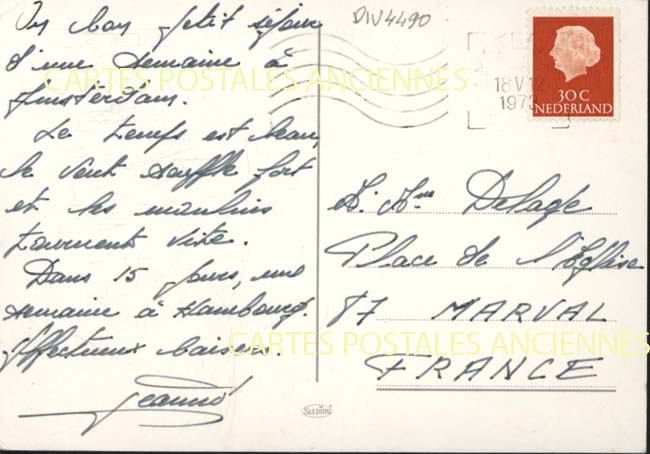 Un bon petit séjour
d'une semaine à
Amsterdam.
Le temps est beau,
le vent souffle fort
et les moulins
tournent vite.
Dans 15 jours, une
semaine à Hambourg.
Affectueux baisers.
DIV4490
18 V 12
1973
30 C
NEDERLAND
CARTES POSTALES ANCIENNES
Delage
Place de l'Eglise
87 MARVAL
FRANCE
CARTES POSTALES ANCIENNES